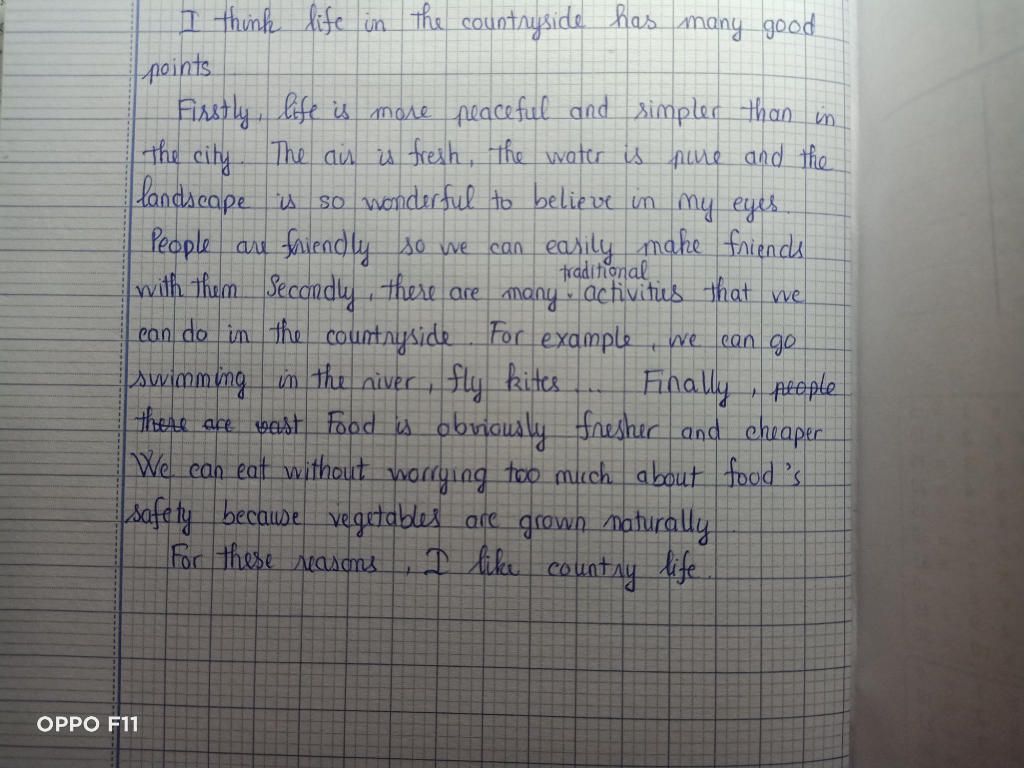 I think life in the countryside has many good
points
Firstly, life is more peaceful and simpler than in
the city. The air is fresh, the water is pure and the
landscape is so wonderful to believe in my eyes.
People are friendly so we can easily make friends
traditional
with them Secondly, there are many activities that we
can do in the countryside. For example, we can go
swimming in the river, fly kites ... Finally, people
there are Food is obviously fresher and cheaper
We can eat without worrying too much about food's
safety because vegetables are grown naturally.
For these reasons, I like country life.
OPPO F11